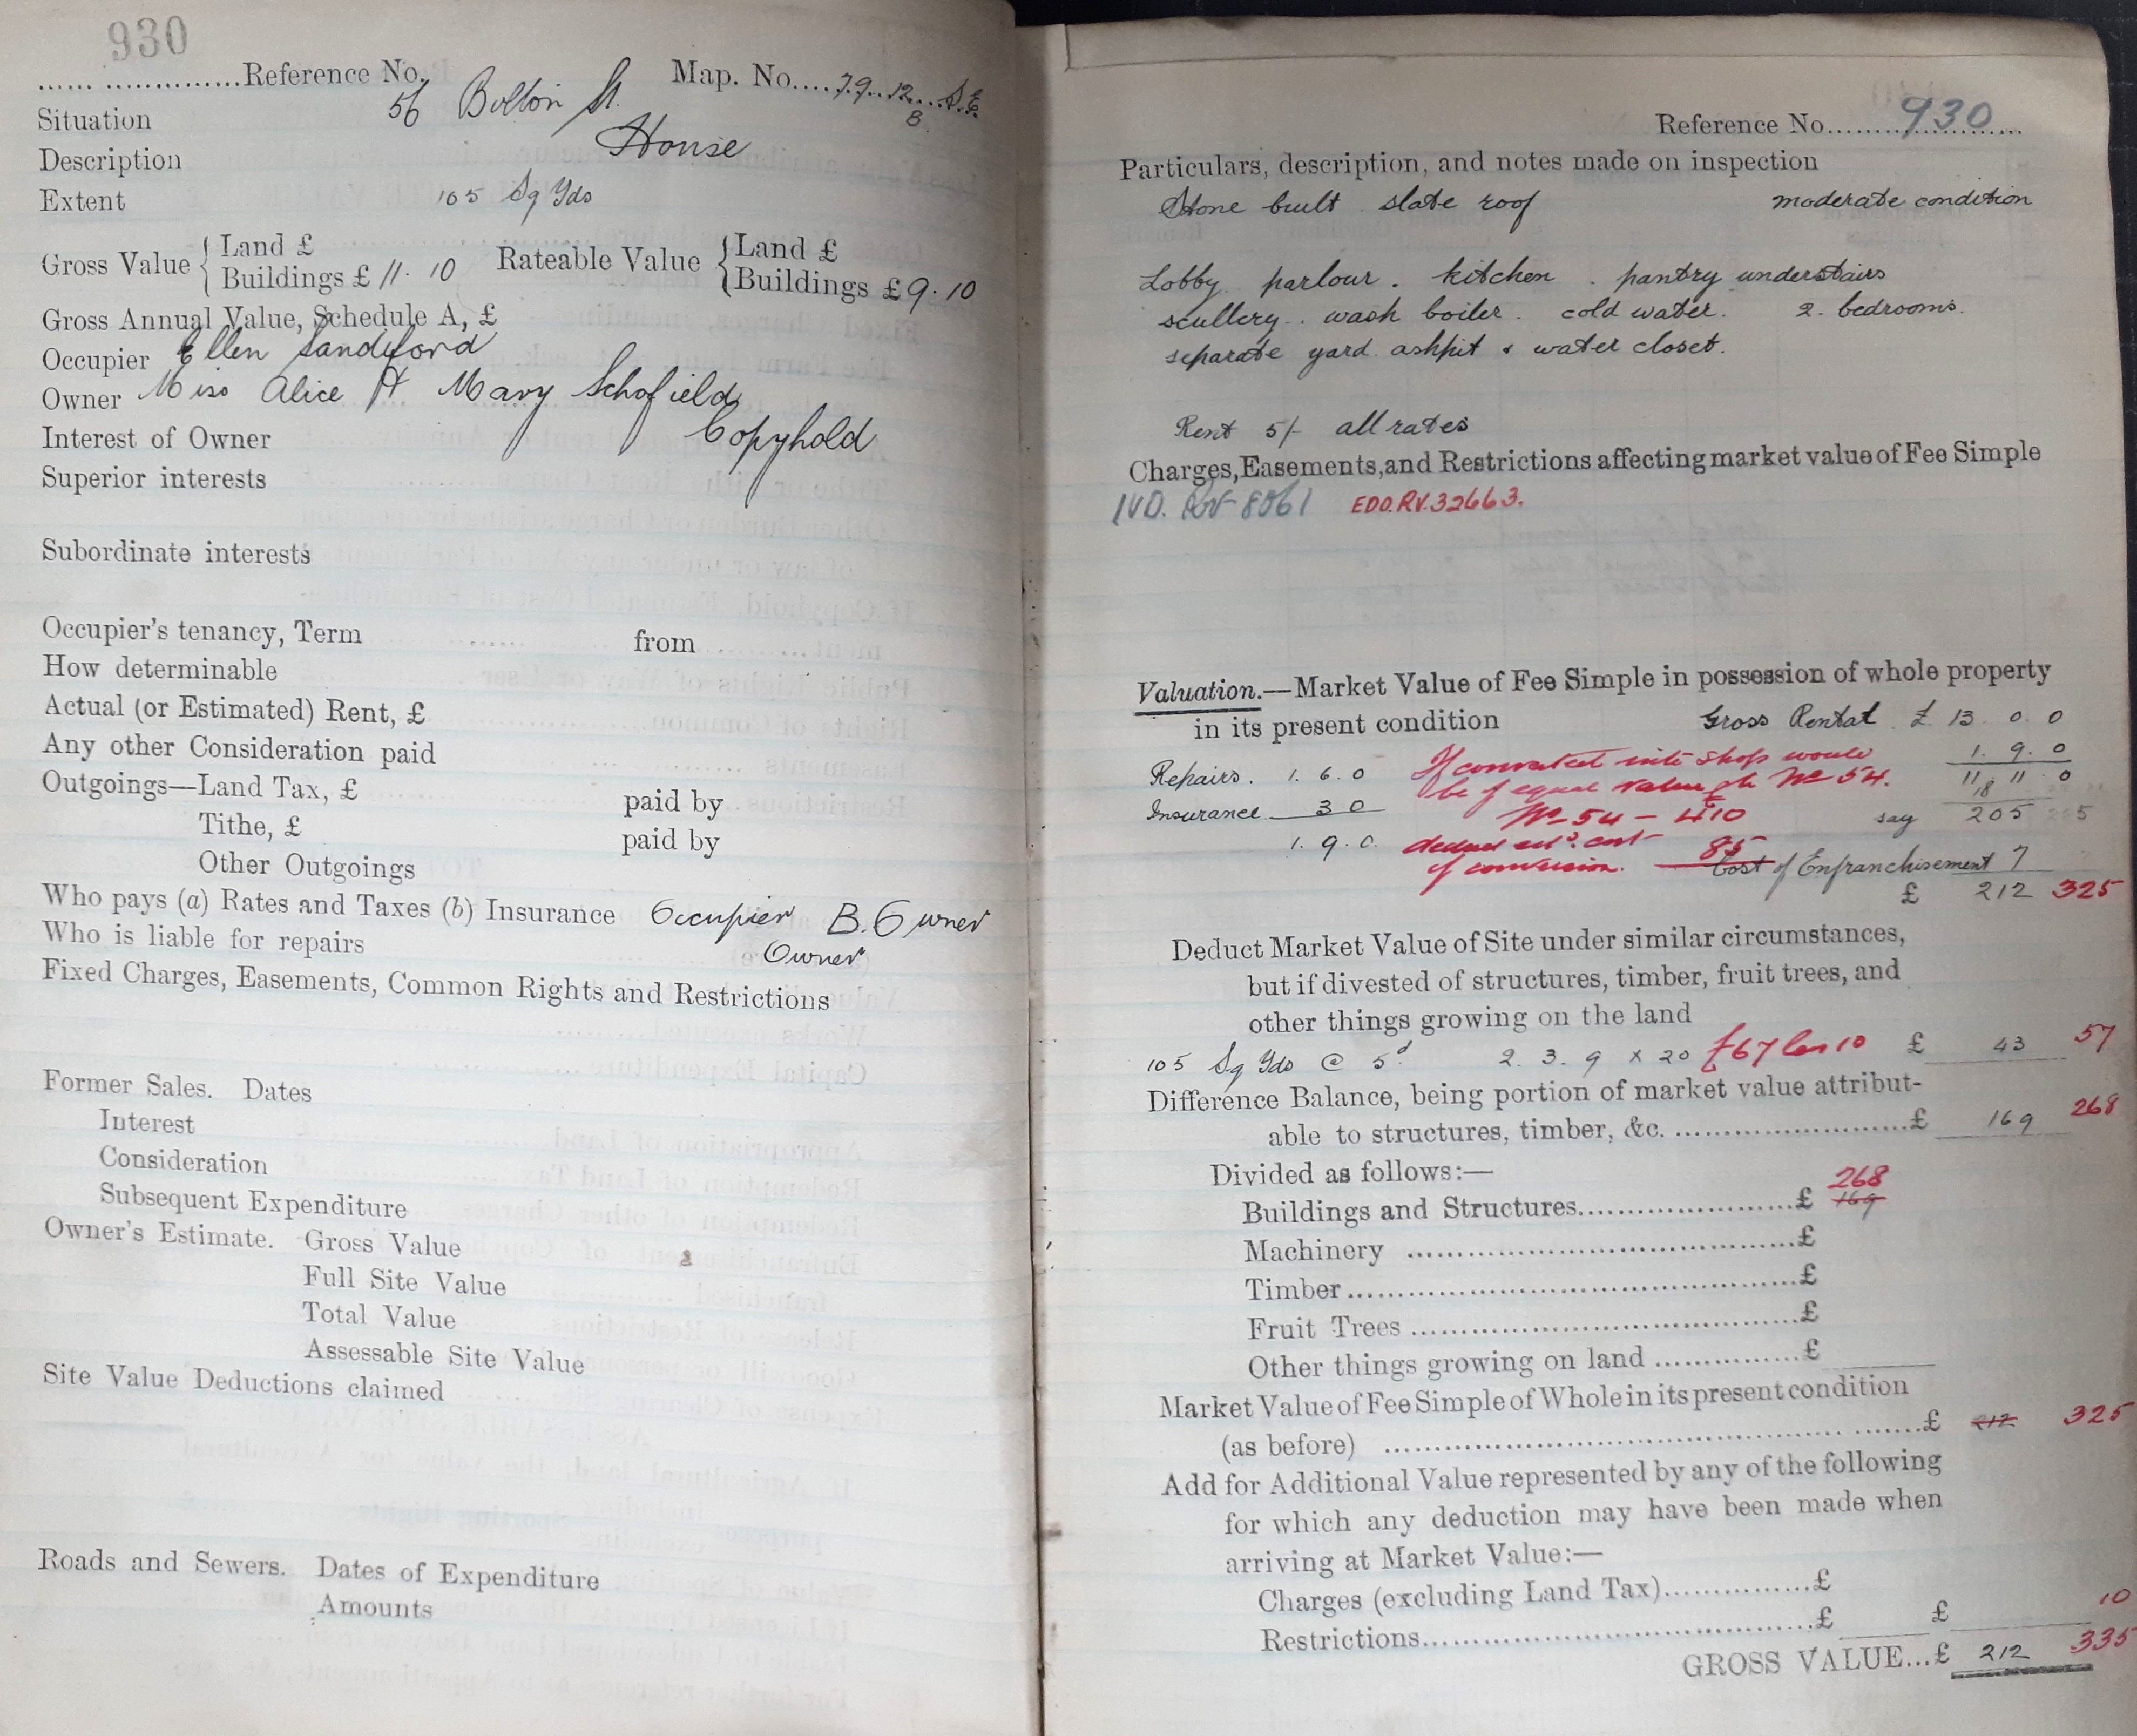 930
Reference No. Map. No. 79. 12. S.E.
8
Situation 56 Bolton St.
Description House
Extent 105 Sq Yds
Gross Value { Land £ Rateable Value { Land £
Buildings £ 11. 10 Buildings £ 9. 10
Gross Annual Value, Schedule A, £
Occupier Ellen Sandiford
Owner Miss Alice H. Mary Schofield
Interest of Owner Copyhold
Superior interests
Subordinate interests
Occupier's tenancy, Term from
How determinable
Actual (or Estimated) Rent, £
Any other Consideration paid
Outgoings—Land Tax, £ paid by
Tithe, £ paid by
Other Outgoings
Who pays (a) Rates and Taxes (b) Insurance Occupier B. Owner
Who is liable for repairs Owner
Fixed Charges, Easements, Common Rights and Restrictions
Former Sales. Dates
Interest
Consideration
Subsequent Expenditure
Owner's Estimate. Gross Value
Full Site Value
Total Value
Assessable Site Value
Site Value Deductions claimed
Roads and Sewers. Dates of Expenditure
Amounts
Reference No. 930
Particulars, description, and notes made on inspection
Stone built slate roof moderate condition
Lobby parlour. kitchen. pantry understairs
scullery. wash boiler. cold water. 2. bedrooms.
separate yard ashpit & water closet.
Rent 5/- all rates
Charges, Easements, and Restrictions affecting market value of Fee Simple
IVD. 8061 EDO.RV.32663.
Valuation.—Market Value of Fee Simple in possession of whole property
in its present condition Gross Rental £ 13 0. 0
1. 9. 0
Repairs. 1. 6. 0 If converted into shop would 11. 11 0
be of equal value to No 54. 18
Insurance 3 0 No 54 - £410 say 205
1. 9. 0. deduct estd. cost 85
of conversion. Cost of Enfranchisement 7
£ 212 325
Deduct Market Value of Site under similar circumstances,
but if divested of structures, timber, fruit trees, and
other things growing on the land
105 Sq Yds @ 5d 2. 3. 9 x 20 £67 less 10 £ 43 57
Difference Balance, being portion of market value attribut-
able to structures, timber, &c. £ 169 268
Divided as follows:—
268
Buildings and Structures £ 169
Machinery £
Timber £
Fruit Trees £
Other things growing on land £
Market Value of Fee Simple of Whole in its present condition
(as before) £ 212 325
Add for Additional Value represented by any of the following
for which any deduction may have been made when
arriving at Market Value:—
Charges (excluding Land Tax) £
Restrictions £ £ 10
GROSS VALUE...£ 212 335